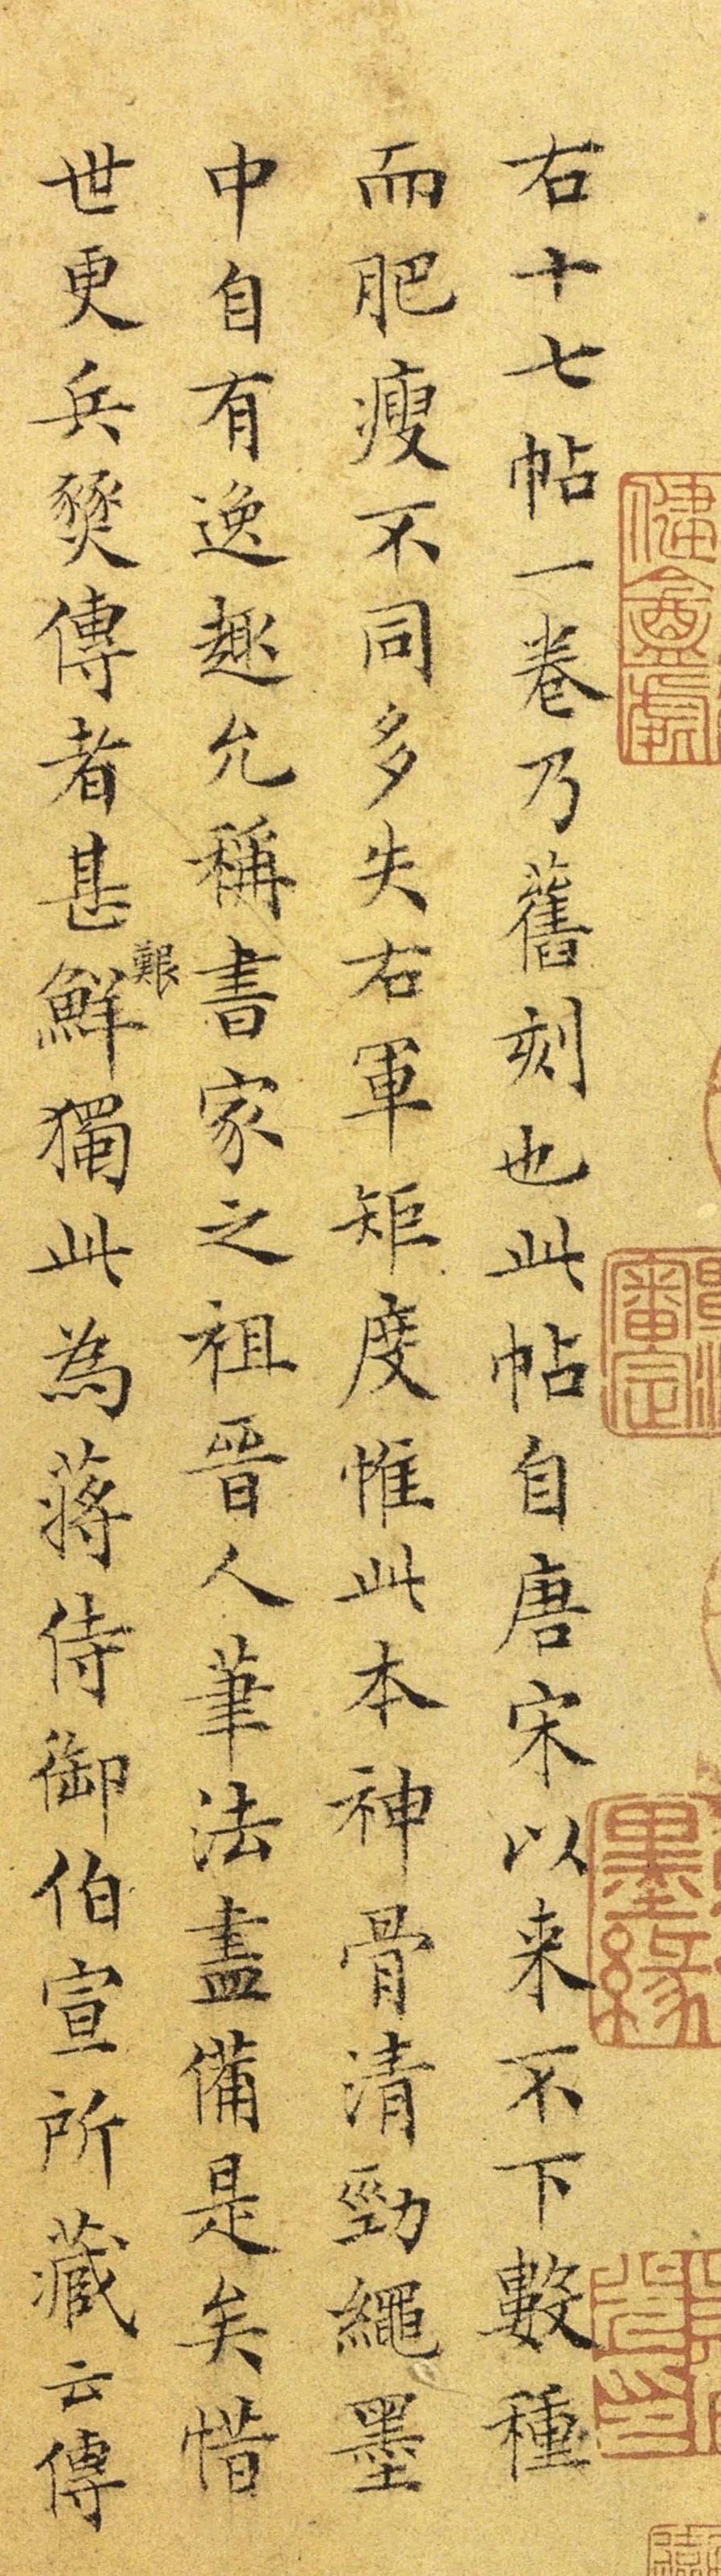 右十七帖一卷乃舊刻也此帖自唐宋以来不下數種
而肥瘦不同多失右軍矩度惟此本神骨清勁繩墨
中自有逸趣允稱書家之祖晉人筆法盡備是矣惜
世更兵燹傳者甚鮮獨此為蔣侍御伯宣所藏云傳
艱
墨緣